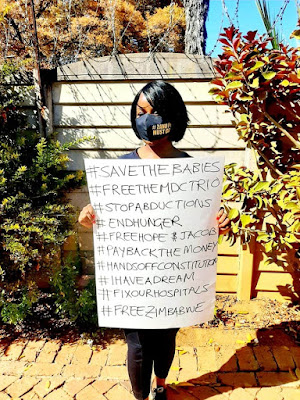 #SAVETHEBABIES
#FREETHEMDCTRIO
#STOPABDUCTIONS
#ENDHUNGER
#FREEHOPE & JACOB
#PAYBACKTHEMONEY
#HANDSOFFCONSTITUTION
#IHAVEADREAM
#FIXOURHOSPITALS
#FREEZIMBABWE